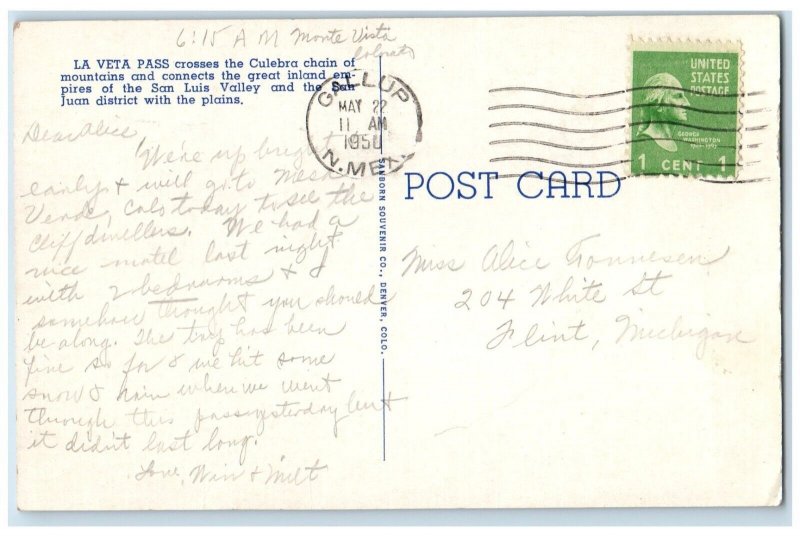 6:15 A M Monte Vista
Colorado
LA VETA PASS crosses the Culebra chain of
mountains and connects the great inland em-
pires of the San Luis Valley and the San
Juan district with the plains.
Dear Alice
We're up bright
early & will go to Mesa
Verde, Colo today to see the
Cliff dwellers. We had a
nice motel last night
with 2 bedrooms & I
somehow thought you should
be along. The trip has been
fine so far & we hit some
snow & rain when we went
through this pass yesterday but
it didn't last long.
Love, Win & Milt
SANBORN SOUVENIR CO., DENVER, COLO.
GALLUP
MAY 22
11 AM
1950
N. MEX.
UNITED
STATES
POSTAGE
GEORGE
WASHINGTON
1 CENT 1
POST CARD
Miss Alice Tonnesen
204 White St
Flint, Michigan